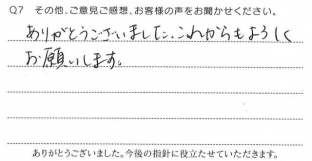 Q7 その他、ご意見ご感想、お客様の声をお聞かせください。
ありがとうございました。これからもよろしく
お願いします。
ありがとうございました。今後の指針に役立たせていただきます。